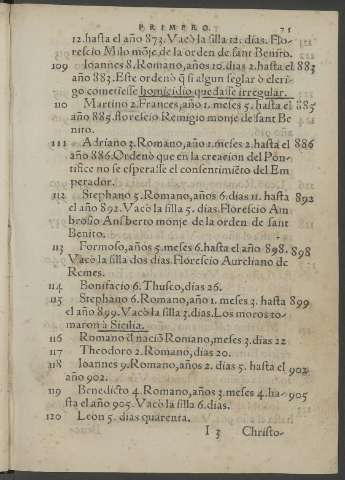 PRIMERO. 75
12. hasta el año 873. Vacò la silla 12. dias. Flo-
rescio Milo mõje de la orden de sant Benito.
109 Ioannes 8. Romano, años 10. dias 2. hasta el 883
año 883. Este ordenò q̃ si algun seglar ò cleri-
go cometiesse homicidio quedasse irregular.
110 Martino 2. Frances, año 1. meses 5. hasta el 885
año 885. florescio Remigio monje de sant Be
nito.
111 Adriano 3. Romano, año 1. meses 2. hasta el 886
año 886. Ordenò que en la creacion del Põn-
tifice no se esperasse el consentimiẽto del Em
perador.
112 Stephano 5. Romano, años 6. dias 11. hasta 892
el año 892. Vacò la silla 5. dias. Florescio Am
brosio Ansberto monje de la orden de sant
Benito.
113 Formoso, años 5. meses 6. hasta el año 898. 898
Vacò la silla dos dias. Florescio Aureliano de
Remes.
114 Bonifacio 6. Thusco, dias 26.
115 Stephano 6. Romano, año 1. meses 3. hasta 899
el año 899. Vacò la silla 3. dias. Los moros to-
maron à Sicilia.
116 Romano d̃ naciõ Romano, meses 3. dias 22
117 Theodoro 2. Romano, dias 20.
118 Ioannes 9. Romano, años 2. dias 5. hasta el 902
año 902.
119 Benedicto 4. Romano, años 3. meses 4. ha- 905
sta el año 905. Vacò la silla 6. dias.
120 Leon 5. dias quarenta.
I 3 Christo-